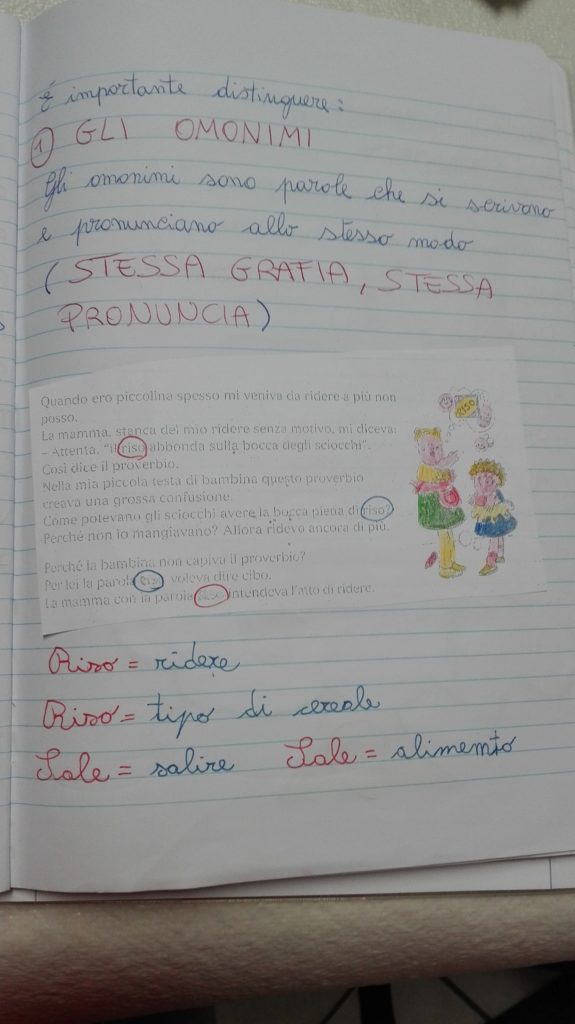 É importante distinguere:
1 GLI OMONIMI
Gli omonimi sono parole che si scrivono
e pronunciano allo stesso modo
(STESSA GRAFIA, STESSA
PRONUNCIA)
Quando ero piccolina spesso mi veniva da ridere a più non
posso.
La mamma, stanca del mio ridere senza motivo, mi diceva:
– Attenta, "il riso abbonda sulla bocca degli sciocchi".
Così dice il proverbio.
Nella mia piccola testa di bambina questo proverbio
creava una grossa confusione.
Come potevano gli sciocchi avere la bocca piena di riso?
Perché non lo mangiavano? Allora ridevo ancora di più.
RISO
Perché la bambina non capiva il proverbio?
Per lei la parola riso voleva dire cibo.
La mamma con la parola riso intendeva l'atto di ridere.
Riso = ridere
Riso = tipo di cereale
Sale = salire Sale = alimento